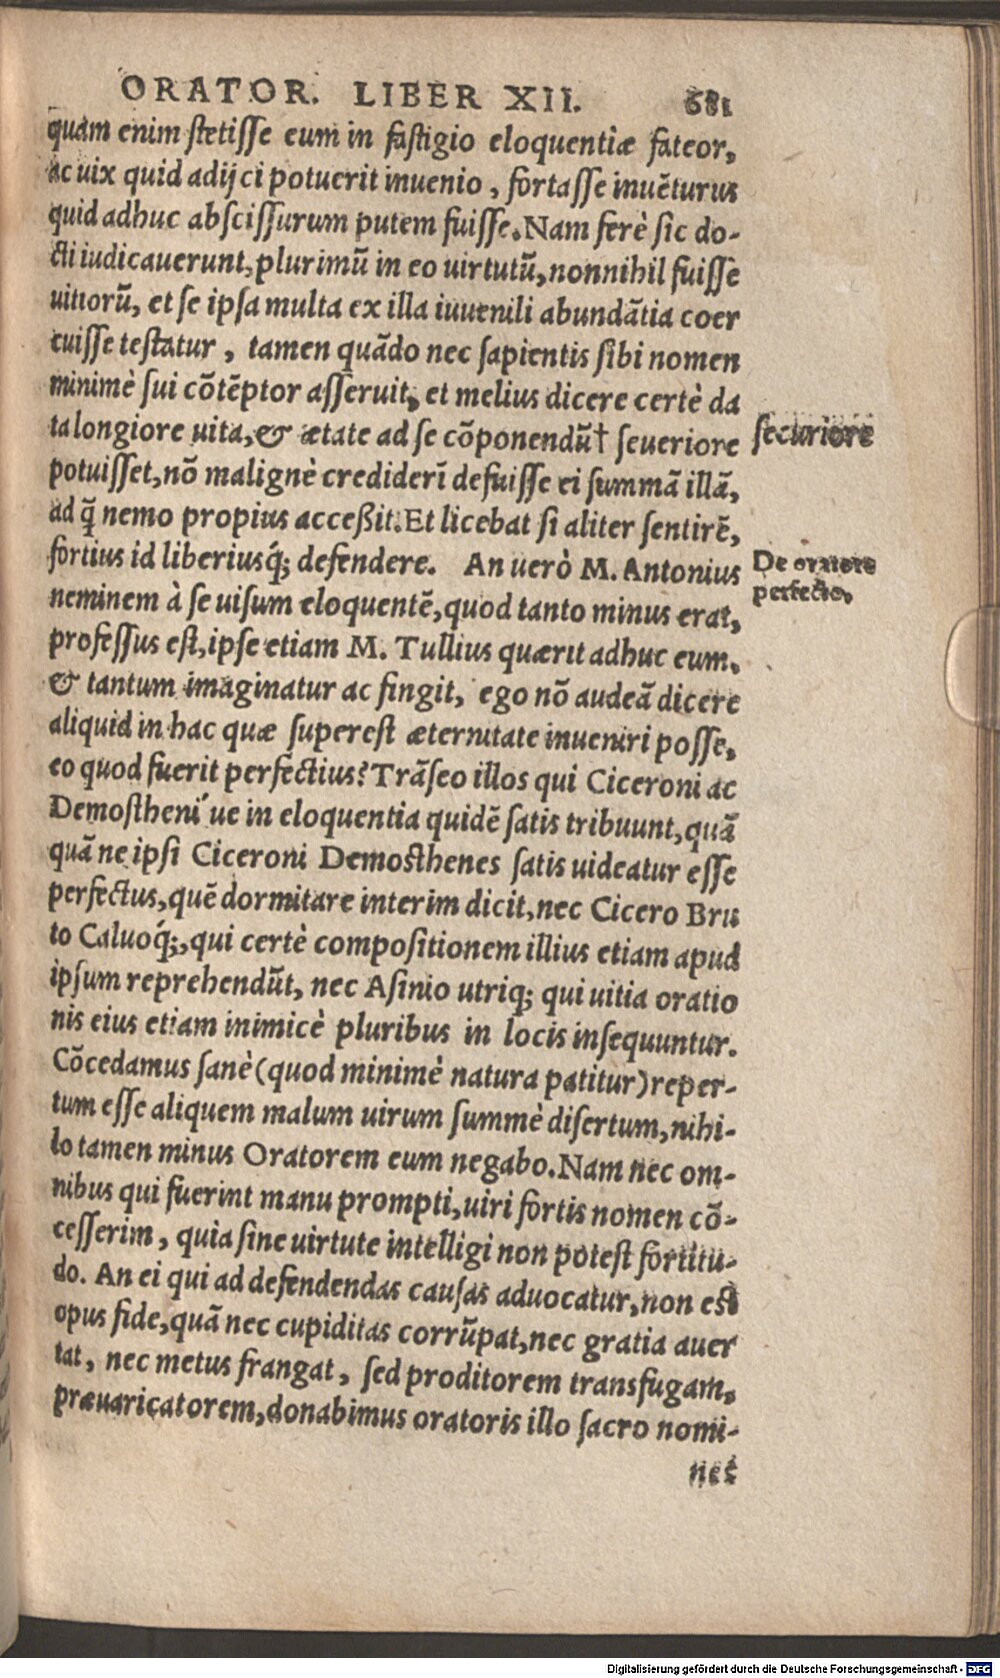 ORATOR. LIBER XII. 681
quàm enim stetisse eum in fastigio eloquentiæ fateor,
ac uix quid adijci potuerit inuenio, fortasse inuẽturus
quid adhuc abscissurum putem fuisse. Nam ferè sic do-
cti iudicauerunt, plurimũ in eo uirtutũ, nonnihil fuisse
uitiorũ, et se ipsa multa ex illa iuuenili abundãtia coer
cuisse testatur, tamen quãdo nec sapientis sibi nomen
minimè sui cõtẽptor asseruit, et melius dicere certè da
ta longiore uita, & ætate ad se cõponendũ† seueriore
securiore
potuisset, nõ malignè credideri͂ defuisse ei summã illã,
ad q̃ nemo propius acceßit. Et licebat si aliter sentirẽ,
fortius id liberiusq́; defendere. An uerò M. Antonius
De oratore
perfecto,
neminem à se uisum eloquentẽ, quod tanto minus erat,
professus est, ipse etiam M. Tullius quærit adhuc eum,
& tantum imaginatur ac fingit, ego nõ audeã dicere
aliquid in hac quæ superest æternitate inueniri posse,
eo quod fuerit perfectius? Trãseo illos qui Ciceroni ac
Demostheni ́ue in eloquentia quidẽ satis tribuunt, quã
quã ne ipsi Ciceroni Demosthenes satis uideatur esse
perfectus, quẽ dormitare interim dicit, nec Cicero Bru
to Caluoq́;, qui certè compositionem illius etiam apud
ipsum reprehendũt, nec Asinio utriq; qui uitia oratio
nis eius etiam inimicè pluribus in locis insequuntur.
Cõcedamus sanè (quod minimè natura patitur) reper-
tum esse aliquem malum uirum summè disertum, nihi-
lo tamen minus Oratorem eum negabo. Nam nec om-
nibus qui fuerint manu prompti, uiri fortis nomen cõ-
cesserim, quia sine uirtute intelligi non potest fortitu-
do. An ei qui ad defendendas causas aduocatur, non est
opus fide, quã nec cupiditas corrũpat, nec gratia auer
tat, nec metus frangat, sed proditorem transfugam,
præuaricatorem, donabimus oratoris illo sacro nomi-
ne?
Digitalisierung gefördert durch die Deutsche Forschungsgemeinschaft - DFG